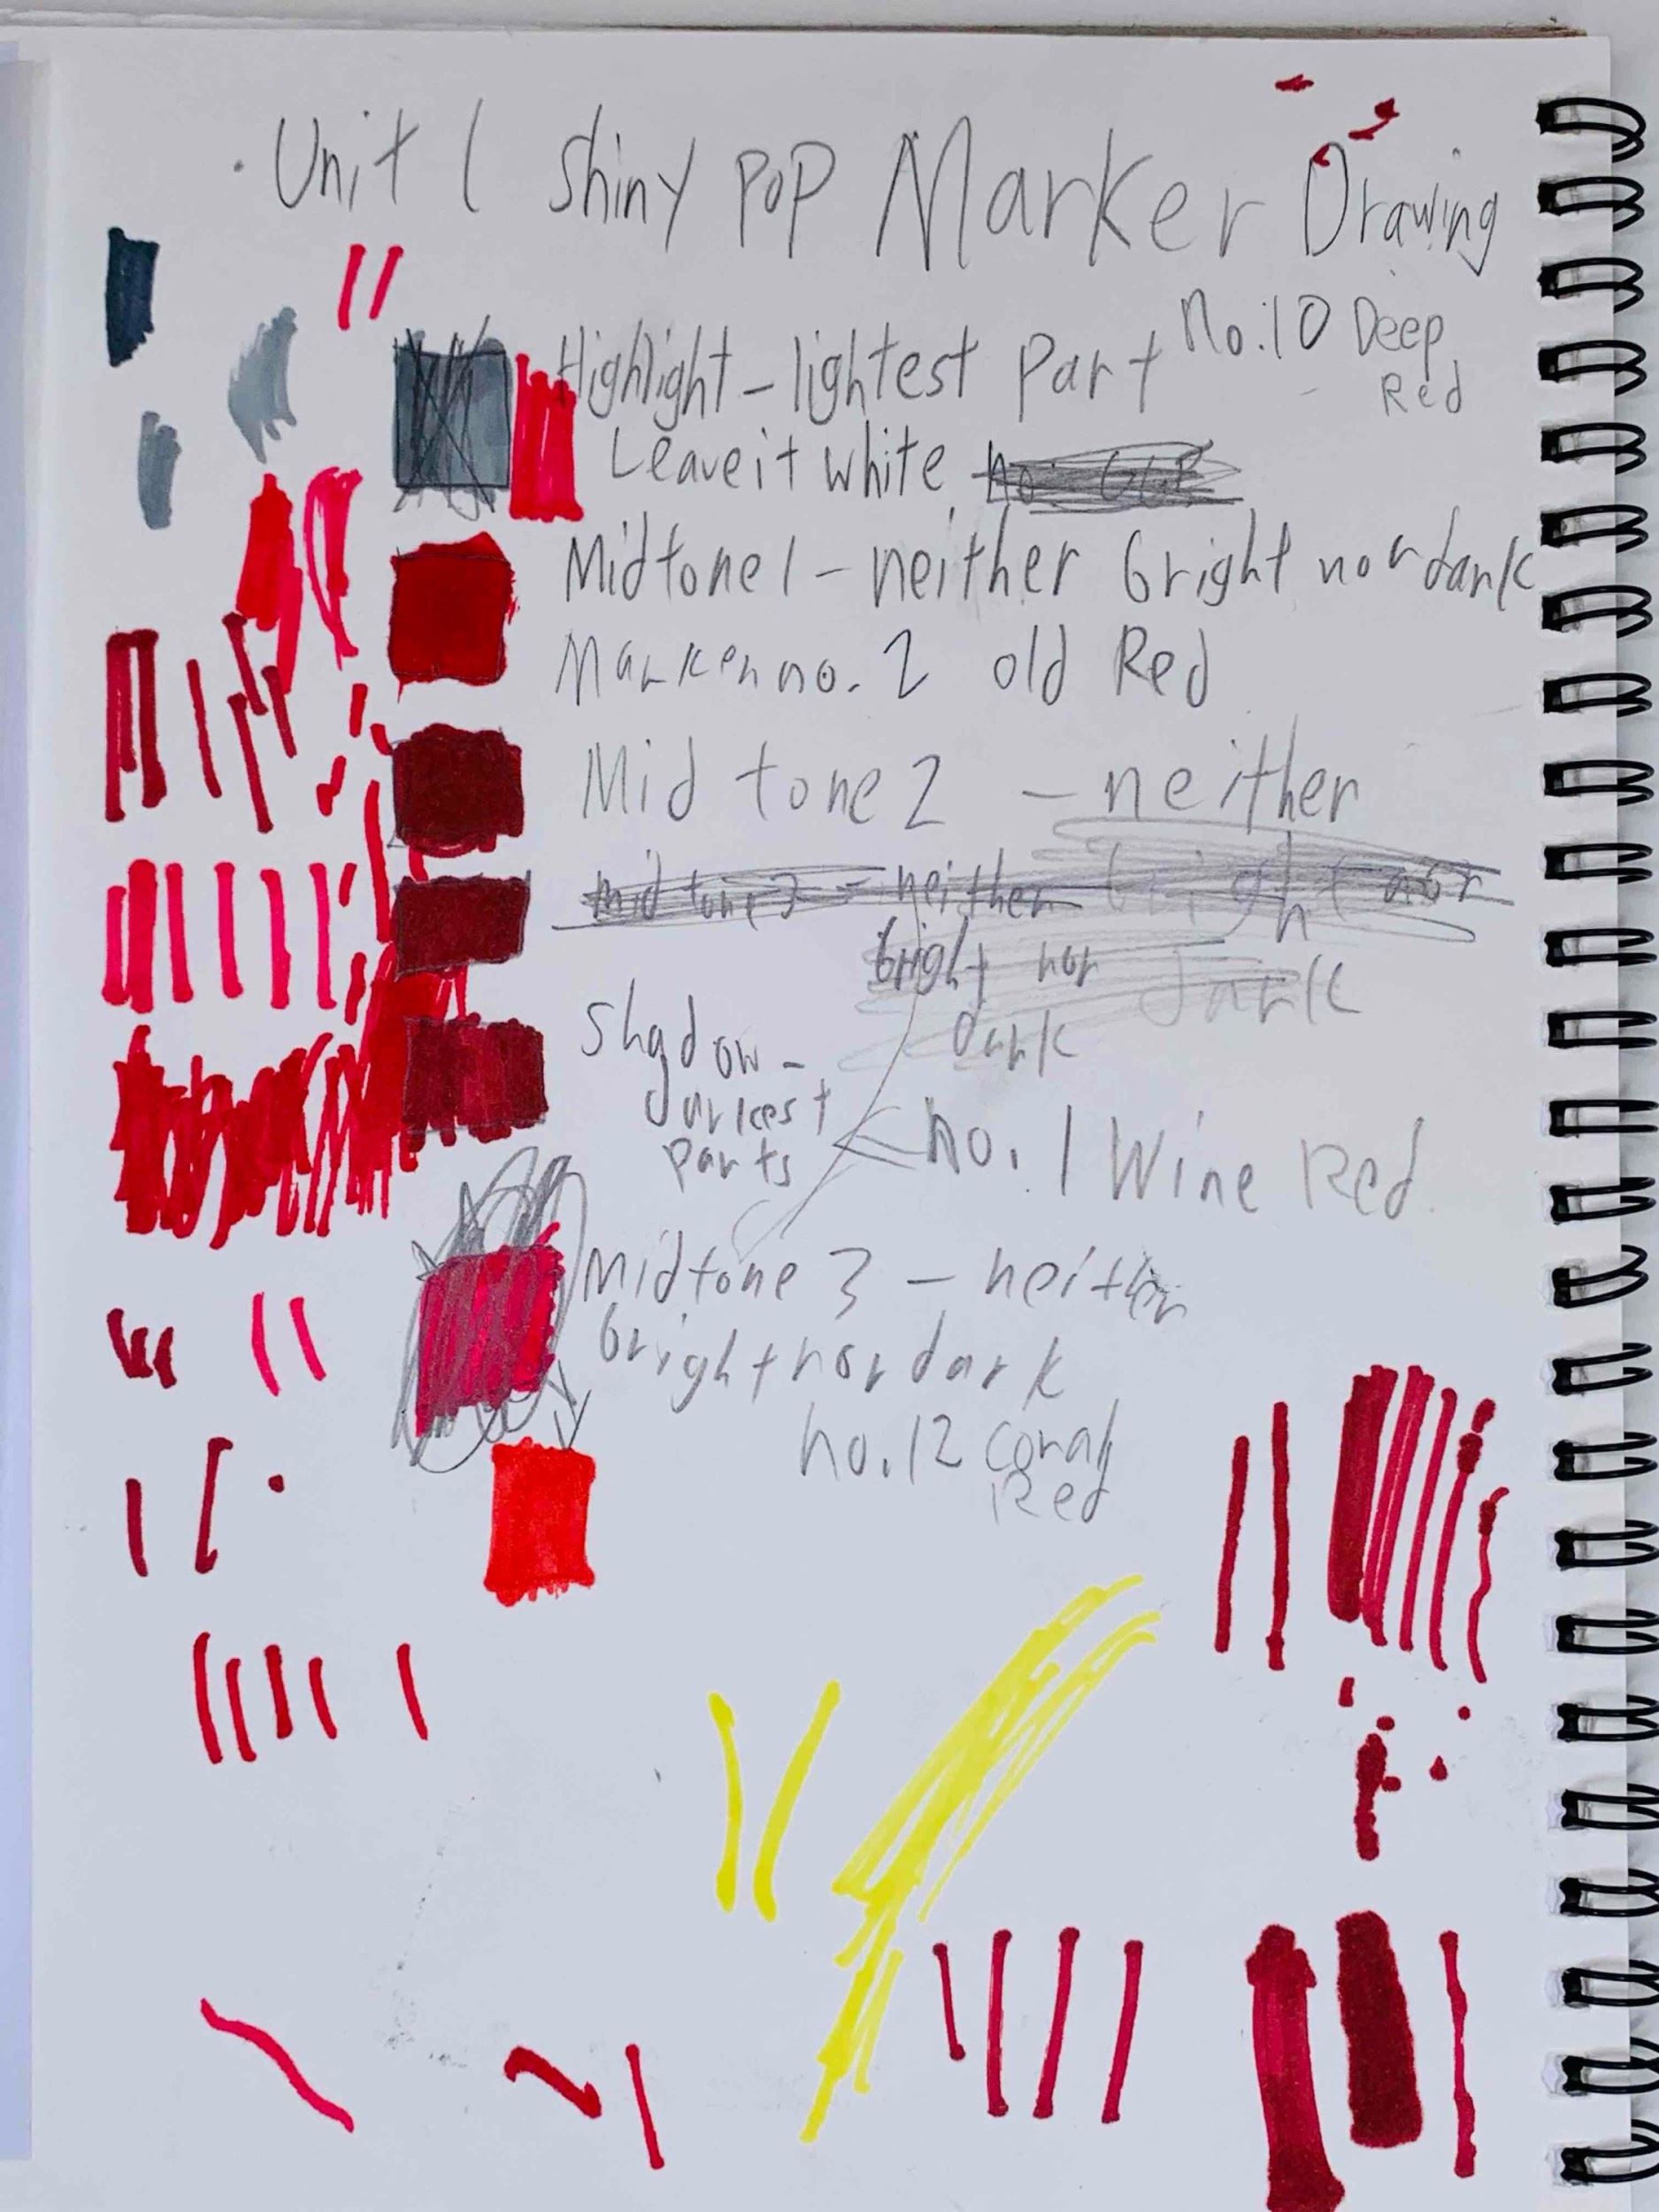 · Unit 1 Shiny Pop Marker Drawing
Highlight - lightest Part no.10 Deep
Red
Leave it white
Midtone 1 - neither bright nor dark
Marker no. 2 old Red
Mid tone 2 - neither
mid tone 3 - neither bright nor
bright nor dark
dark
Shadow -
darkest
parts
no. 1 Wine Red
Midtone 3 - neither
bright nor dark
no.12 Coral
Red